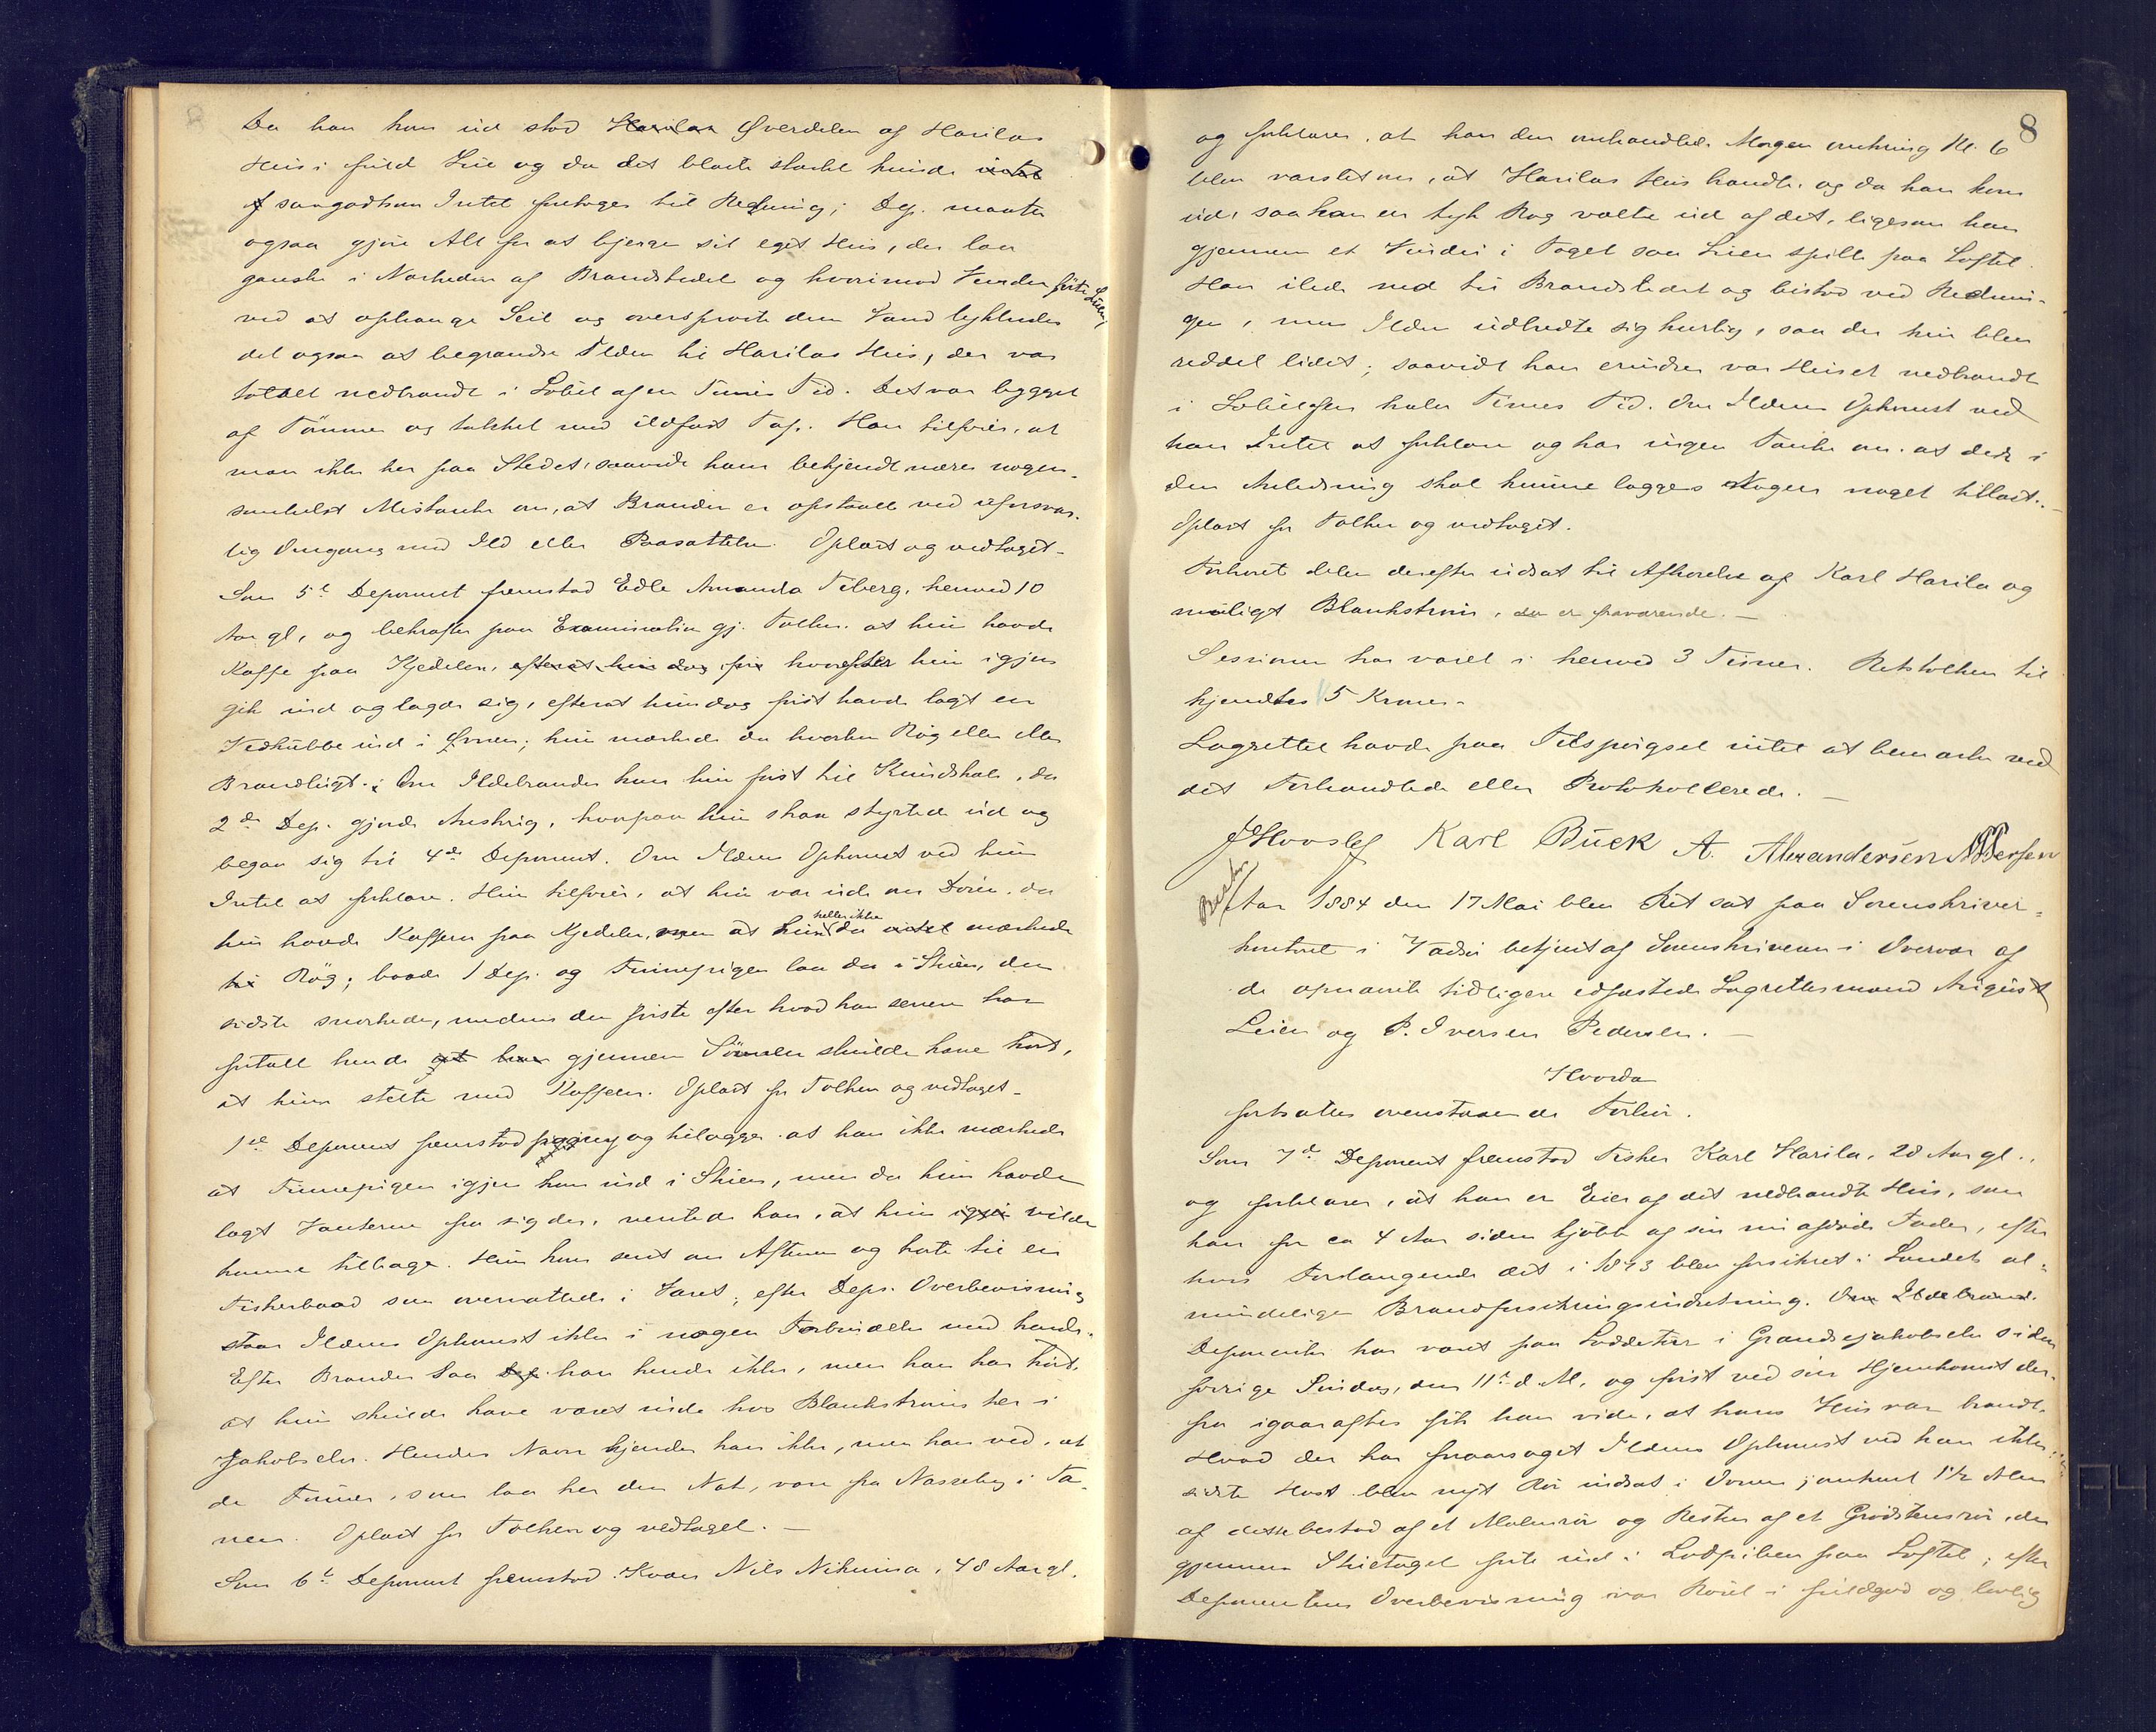 Da han kom ud stod Harilas Øverdelen af Harilas
Huus i fuld Lue og da det blæste stærkt kunde intet
f saagodtsom Intet foretages til Redning; Dep. maatte
ogsaa gjøre Alt for at bjerge sit eget Huus, der laa
ganske i Nærheden af Brandstedet og hvorimod Vinden førte Luen;
ved at ophænge Seil og oversprøite dem Vand lykkedes
det ogsaa at begrændse Ilden til Harilas Huus, der var
totalt nedbrændt i Løbet af en Times Tid. Det var bygget
af Tømmer og tækket med ildfast Tag. Han tilføier, at
man ikke her paa Stedet, saavidt ham bekjendt nærer nogen-
somhelst Mistanke om, at Branden er opstaaet ved uforsvar-
lig Omgang med Ild eller Paasættelse. Oplæst og vedtaget.
Som 5te Deponent fremstod Edle Amanda Tiberg, henved 10
Aar gl, og bekræfter paa Examination gj. Tolken at hun havde
Kaffe paa Kjedelen, efterat hun dog før hvorefter hun igjen
gik ind og lagde sig, efterat hun dog først havde lagt en
Vedkubbe ind i Ovnen; hun mærkede da hverken Røg eller eller
Brandlugt. Om Ildebranden kom hun først til Kundskab, da
2den Dep. gjorde Anskrig, hvorpaa hun strax styrtede ud og
begav sig til 4de Deponent. Om Ildens Opkomst ved hun
Intet at forklare. Hun tilføier, at hun var ude om Døren, da
hun havde Kaffeen paa Kjedelen, men at hun heller ikke da intet mærkede
til Røg; baade 1 Dep. og Finnepigen laa da i Stuen, den
sidste snorkede, medens den første efter hvad han senere har
fortalt hende at han gjennem Søvnen skulde have hørt,
at hun stelte med Kaffeen. Oplæst for Tolken og vedtaget.
1ste Deponent fremstod paany og tilægger at han ikke mærkede
at Finnepigen igjen kom ind i Stuen, men da hun havde
lagt Vanterne fra sig der, ventede han, at hun igjen vilde
komme tilbage. Hun kom sent om Aftenen og hørte til en
Fiskerbaad som overnattede i Været; efter Deps. Overbevisning
staar Ildens Opkomst ikke i nogen Forbindelse med hende.
Efter Branden saa Dep. han hende ikke, men han har hørt,
at hun skulde have været inde hos Blankstrøms her i
Jakobselv. Hendes Navn kjender han ikke, men han ved, at
de Finner, som laa her den Nat, vare fra Næsseby i Ta-
nen. Oplæst for Tolken og vedtaget.
Som 6te Deponent fremstod Kvæn Nils Nikunia, 48 Aar gl.
8
og forklarer, at han den omhandlede Morgen omkring Kl. 6
blev varslet om, at Harilas Huus brændte, og da han kom
ud, saa han en tyk Røg vælte ud af det, ligesom han
gjennem et Vindu i Taget saa Luen spille paa Loftet.
Han ilede ned til Brandstedet og bistod ved Rednin-
gen, men Ilden udbredte sig hurtig, saa der kun blev
reddet lidet; saavidt han erindrer var Huuset nedbrændt
i Løbet af en halv Times Tid. Om Ildens Opkomst ved
han Intet at forklare og har ingen Tanke om, at der i
den Anledning skal kunne lægges Nogen noget tillast.
Oplæst for Tolken og vedtaget.
Forhøret blev derefter udsat til Afhørelse af Karl Harila og
muligt Blankstrøm, der er fraværende.
Sessionen har varet i henved 3 Timer. Retstolken til
kjendtes 5 Kroner.
Lagrettet havde paa Tilspørgsel intet at bemærke ved
det Forhandlede eller Protokollerede.
Karl Buck A. Alexandersen
Aar 1884 den 17 Mai blev Ret sat paa Sorenskriver-
kontoret i Vadsø betjent af Sorenskriveren i Overvær af
de opnævnte tidligere edfæstede Lagrettesmænd August
Leier og P. Iversen Pedersen.
Hvorda
fortsattes ovenstaaende Forhør.
Som 7de Deponent fremstod Fisker Karl Harila, 28 Aar gl.,
og forklarer, at han er Eier af det nedbrændte Huus, som
han for ca 4 Aar siden kjøbte af sin nu afdøde Fader, efter
hvis Forlangende det i 1873 blev forsikret i Landets al-
mindelige Brandforsikringsindretning. Om Ildebrand.
Deponenten har været paa Loddetur i Grændsejakobselv siden
forrige Søndag, den 11te d. M, og først ved sin Hjemkomst der-
fra igaaraftes fik han vide, at hans Huus var brændt.
Hvad der har foraarsaget Ildens Opkomst ved han ikke;
sidste Høst blev nyt Rør indsat i Ovnen; omkrent 1½ Alen
af dette bestod af et Malmrør og Resten af et Grydstensrør, der
gjennem Stuetaget førte ind i Lodpiben paa Loftet; efter
Deponentens Overbevisning var Røret i fuldgod og lovlig